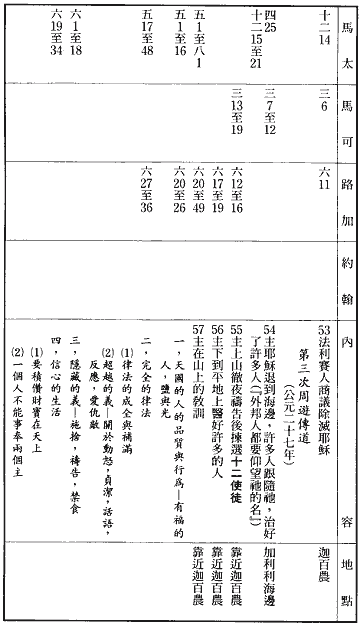 馬太 馬可 路加 約翰 內容 地點
十二14 三6 六11 53法利賽人商議除滅耶穌 迦百農
第三次周遊傳道
(公元二十七年)
四25 三7至12 54主耶穌退到海邊，許多人跟隨祂，治好 加利利海邊
十二15至21 了許多人(「外邦人都要仰望祂的名」)
三13至19 六12至16 55主上山徹夜禱告後揀選十二使徒 靠近迦百農
六17至19 56主下到平地上醫好許多的人 靠近迦百農
五1至八1 六20至49 57主在山上的教訓 靠近迦百農
五1至16 六20至26 一，天國的人的品質與行為—有福的
人，鹽與光
五17至48 六27至36 二，完全的律法
(1)律法的成全與補滿
(2)超越的義—關於動怒，貞潔，話語，
反應，愛仇敵
六1至18 三，隱藏的義—施捨，禱告，禁食
六19至34 四，信心的生活
(1)要積儹財寶在天上
(2)一個人不能事奉兩個主